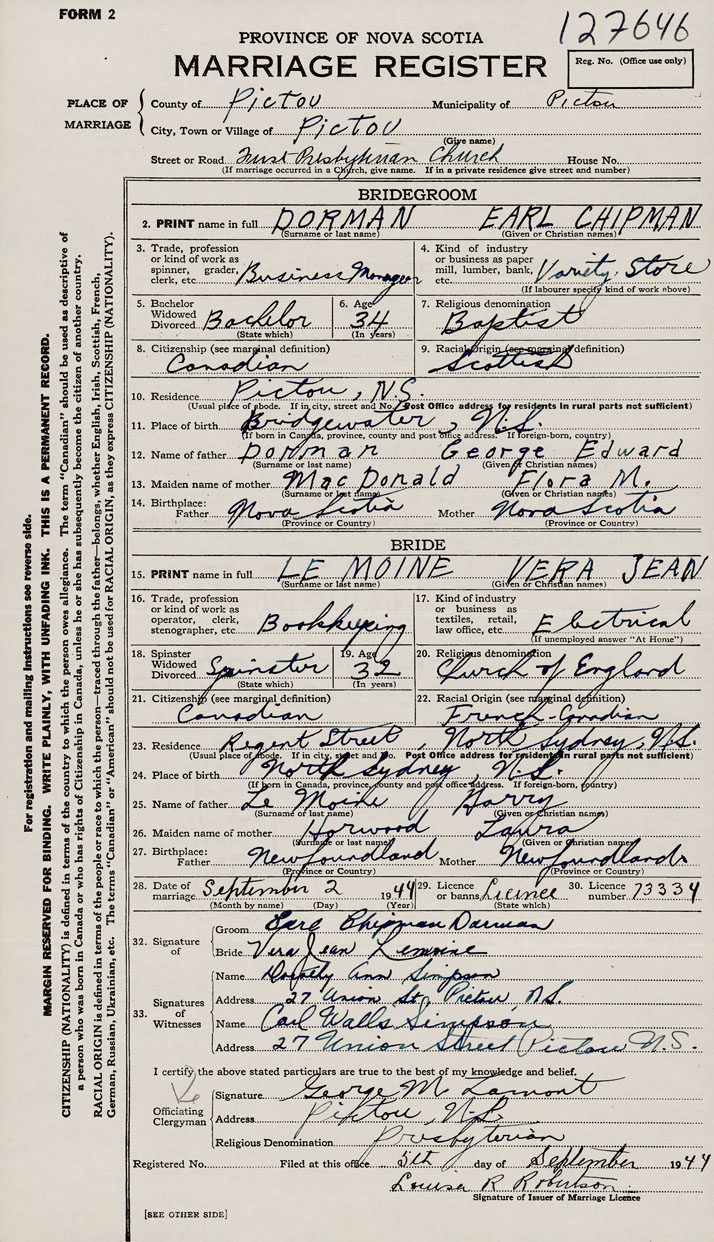 FORM 2
127646
PROVINCE OF NOVA SCOTIA
MARRIAGE REGISTER
Reg. No. (Office use only)
PLACE OF MARRIAGE
County of Pictou Municipality of Pictou
City, Town or Village of Pictou
(Give name)
Street or Road First Presbyterian Church House No.
(If marriage occurred in a Church, give name. If in a private residence give street and number)
BRIDEGROOM
2. PRINT name in full DORMAN EARL CHIPMAN
(Surname or last name) (Given or Christian names)
3. Trade, profession or kind of work as spinner, grader, clerk, etc. Business Manager
4. Kind of industry or business as paper mill, lumber, bank, etc. Variety Store
(If labourer specify kind of work above)
5. Bachelor Widowed Divorced Bachelor
(State which)
6. Age 34
(In years)
7. Religious denomination
Baptist
8. Citizenship (see marginal definition)
Canadian
9. Racial Origin (see marginal definition)
Scottish
10. Residence Pictou, N.S.
(Usual place of abode. If in city, street and No. Post Office address for residents in rural parts not sufficient)
11. Place of birth Bridgewater, N.S.
(If born in Canada, province, county and post office address. If foreign-born, country)
12. Name of father Dorman George Edward
(Surname or last name) (Given or Christian names)
13. Maiden name of mother MacDonald Flora M.
(Surname or last name) (Given or Christian names)
14. Birthplace: Father Nova Scotia Mother Nova Scotia
(Province or Country) (Province or Country)
BRIDE
15. PRINT name in full LE MOINE VERA JEAN
(Surname or last name) (Given or Christian names)
16. Trade, profession or kind of work as operator, clerk, stenographer, etc. Bookkeeping
17. Kind of industry or business as textiles, retail, law office, etc. Electrical
(If unemployed answer "At Home")
18. Spinster Widowed Divorced Spinster
(State which)
19. Age 32
(In years)
20. Religious denomination
Church of England
21. Citizenship (see marginal definition)
Canadian
22. Racial Origin (see marginal definition)
French-Canadian
23. Residence Regent Street, North Sydney, N.S.
(Usual place of abode. If in city, street and No. Post Office address for residents in rural parts not sufficient)
24. Place of birth North Sydney, N.S.
(If born in Canada, province, county and post office address. If foreign-born, country)
25. Name of father Le Moine Harry
(Surname or last name) (Given or Christian names)
26. Maiden name of mother Horwood Laura
(Surname or last name) (Given or Christian names)
27. Birthplace: Father Newfoundland Mother Newfoundland
(Province or Country) (Province or Country)
28. Date of marriage September 2 1944
(Month by name) (Day) (Year)
29. Licence or banns Licence
(State which)
30. Licence number 73334
32. Signature of
Groom Earl Chipman Dorman
Bride Vera Jean Lemoine
33. Signatures of Witnesses
Name Dorothy Ann Simpson
Address 27 Union St., Pictou, N.S.
Name Carl Walls Simpson
Address 27 Union Street Pictou N.S.
I certify the above stated particulars are true to the best of my knowledge and belief.
Officiating Clergyman
Signature George M Lamont
Address Pictou, N.S.
Religious Denomination Presbyterian
Registered No. Filed at this office 5th day of September 1944
Louisa R Robertson
Signature of Issuer of Marriage Licence
[SEE OTHER SIDE]
For registration and mailing instructions see reverse side.
MARGIN RESERVED FOR BINDING. WRITE PLAINLY, WITH UNFADING INK. THIS IS A PERMANENT RECORD.
CITIZENSHIP (NATIONALITY) is defined in terms of the country to which the person owes allegiance. The term "Canadian" should be used as descriptive of
a person who was born in Canada or who has rights of Citizenship in Canada, unless he or she has subsequently become the citizen of another country.
RACIAL ORIGIN is defined in terms of the people or race to which the person—traced through the father—belongs, whether English, Irish, Scottish, French,
German, Russian, Ukrainian, etc. The terms "Canadian" or "American" should not be used for RACIAL ORIGIN, as they express CITIZENSHIP (NATIONALITY).